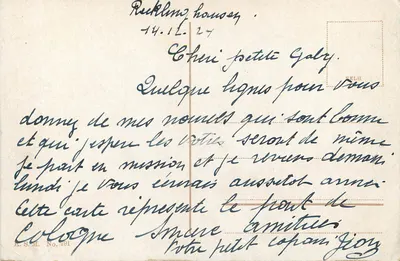 Recklinghausen.
14.12.24
Cheri petite Gaby.
Quelque lignes pour vous
donnez de mes nouvels qui sont bonne
et qui j'espere les votres seront de même
je part en mission et je reviens demain
lundi je vous écrirais aussetot arrivé
Cette carte représente le pont de
Cologne sincere amitiées
Votre petit copain